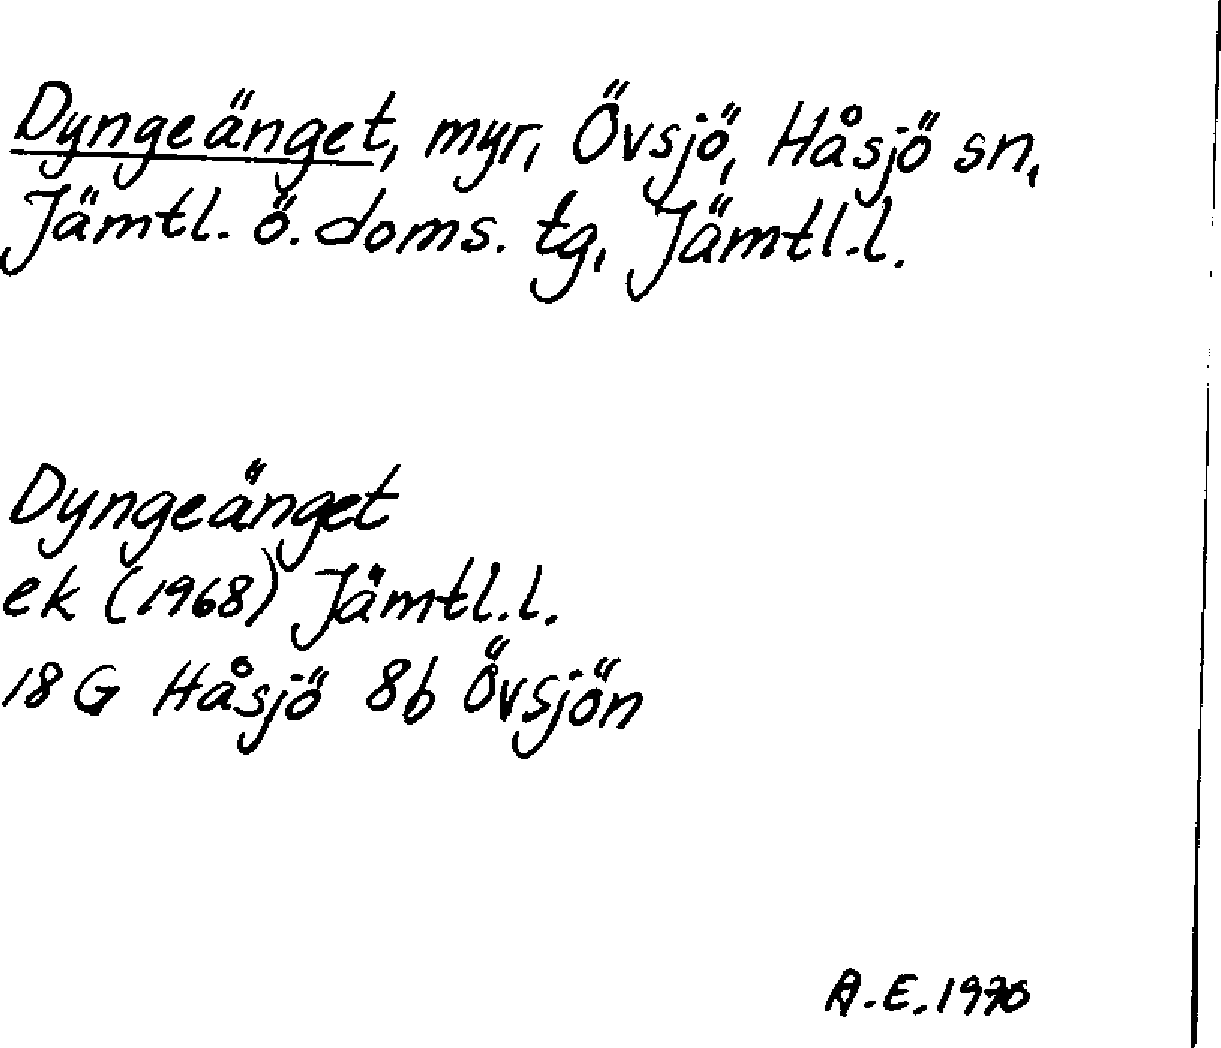 Dyngeänget, myr, Övsjö, Håsjö sn,
Jämtl. ö. doms. tg, Jämtl.l.
Dyngeänget
ek (1968) Jämtl.l.
18 G Håsjö 8b Övsjön
A.E. 1970